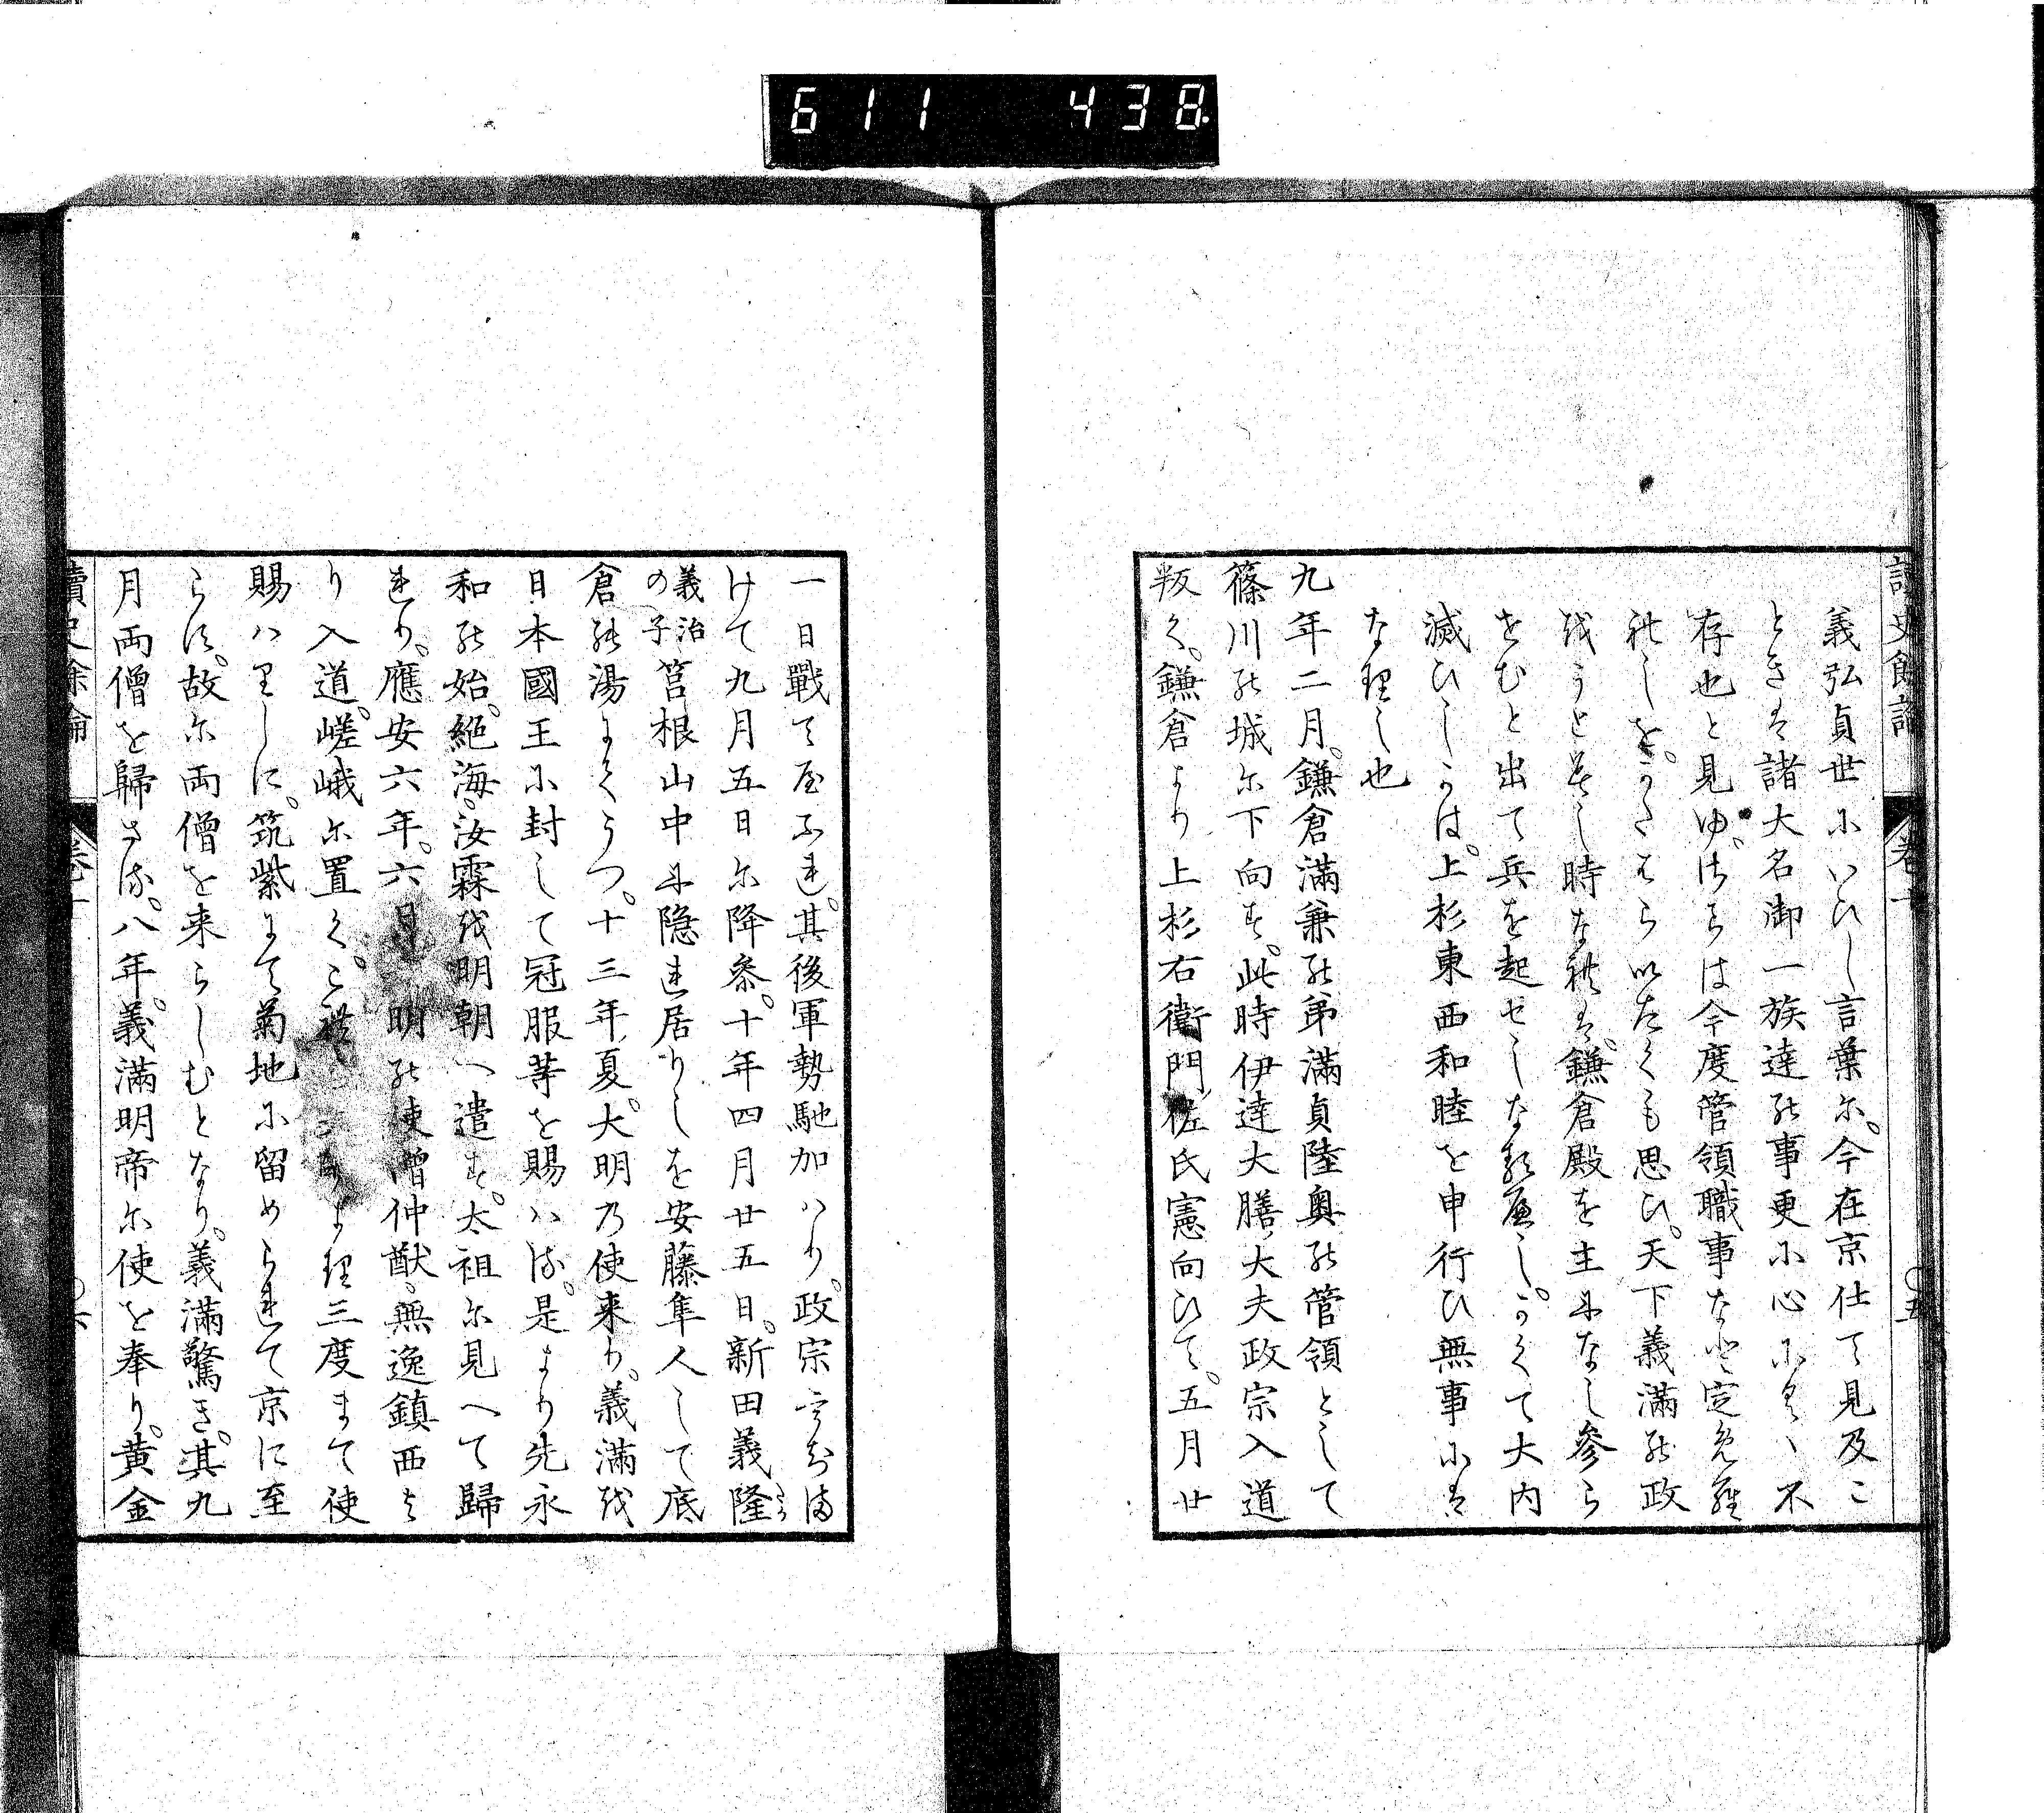 611 438
讀史餘論 卷十 〇五
義弘貞世にいひし言葉に。今在京仕て見及こ
ときは諸大名御一族達の事更に心にくゝ不
存也と見ゆ。さらは今度管領職事など定免難
れしを。かたはら以たくも思ひ。天下義滿の政
をうとみし時なれは。鎌倉殿を主になし參ら
せむと出て兵を起せしなるへし。かくて大内
滅ひしかは。上杉東西和睦を申行ひ無事には
なりし也
九年二月。鎌倉滿兼の弟滿貞陸奥の管領として
篠川の城に下向す。此時伊達大膳大夫政宗入道
叛く。鎌倉より上杉右衛門佐氏憲向ひて。五月廿
一日戰て屋ふれ。其後軍勢馳加ハり。政宗うちま
けて九月五日に降參。十年四月廿五日。新田義隆
義治の子 筥根山中に隠れ居りしを安藤隼人して底
倉の湯にてうつ。十三年夏。大明乃使来り。義滿を
日本國王に封して冠服等を賜ハる。是より先永
和の始。絶海。汝霖を明朝へ遣す。太祖に見へて歸
れり。應安六年。六月。明の使僧仲猷。無逸鎮西よ
り入道。嵯峨に置く。これ より三度まて使
賜ハりしに。筑紫にて菊地に留められて京に至
らす。故に両僧を来らしむとなり。義滿驚き。其九
月両僧を歸さる。八年。義滿明帝に使を奉り。黄金
讀史餘論 卷十 〇六